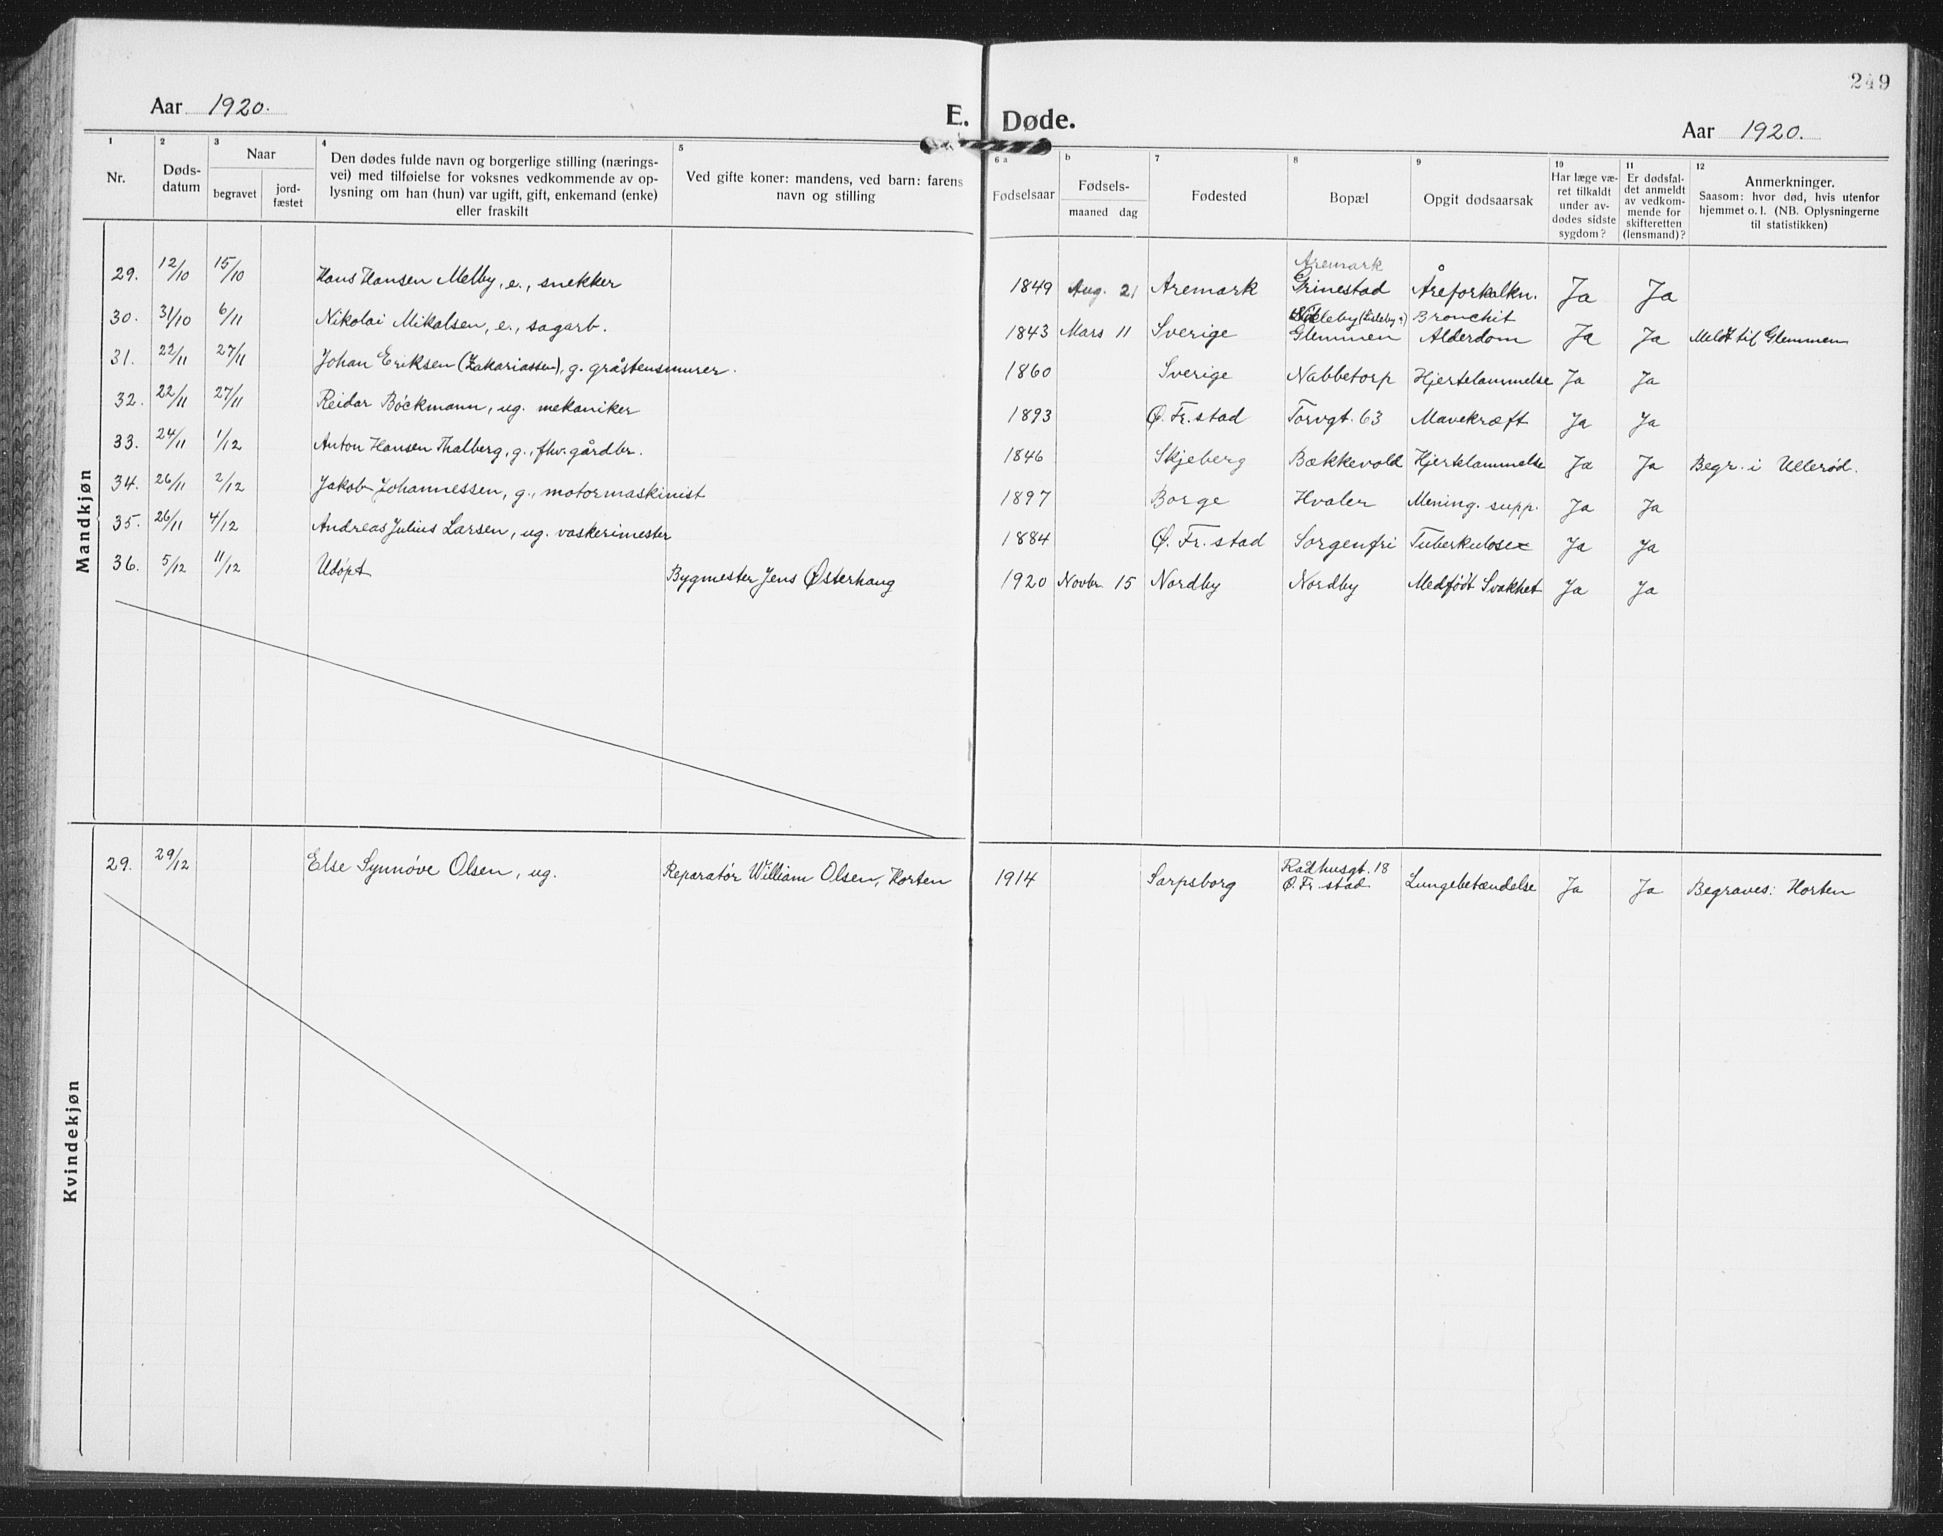 249
Aar 1920.
E. Døde.
Aar 1920.
1 2 3 4 5 6 a b 7 8 9 10 11 12
Nr.
Døds-
datum
Naar
begravet
jord-
fæstet
Den dødes fulde navn og borgerlige stilling (nærings-
vei) med tilføielse for voksnes vedkommende av op-
lysning om han (hun) var ugift, gift, enkemand (enke)
eller fraskilt
Ved gifte koner: mandens, ved barn: farens
navn og stilling
Fødselsaar
Fødsels-
maaned dag
Fødested
Bopæl
Opgit dødsaarsak
Har læge væ-
ret tilkaldt
under av-
dødes sidste
sygdom?
Er dødsfal-
det anmeldt
av vedkom-
mende for
skifteretten
(lensmand)?
Anmerkninger.
Saasom: hvor død, hvis utenfor
hjemmet o. l. (NB. Oplysningerne
til statistikken)
Mandkjøn
Aremark
29. 12/10 15/10 Hans Hansen Melby, e., snekker 1849 Aug. 21 Aremark Grinestad Åreforkalkn. Ja Ja
(Lisleby?) Bronchit
30. 31/10 6/11 Nikolai Mikalsen, e., sagarb. 1843 Mars 11 Sverige Glemmen Alderdom Ja Ja Meldt til Glemmen
31. 22/11 27/11 Johan Eriksen (Zakariassen), g. gråstensmurer. 1860 Sverige Nabbetorp Hjertelammelse Ja Ja
32. 22/11 27/11 Reidar Böckmann, ug. mekaniker 1893 Ø. Fr. stad Torvgt. 63 Mavekræft Ja Ja
33. 24/11 1/12 Anton Hansen Thalberg, g., fhv. gårdbr. 1846 Skjeberg Bækkevold Hjertelammelse Ja Ja Begr. i Ullerød.
34. 26/11 2/12 Jakob Johannessen, g., motormaskinist 1897 Borge Hvaler Mening. supp. Ja Ja
35. 26/11 4/12 Andreas Julius Larsen, ug. vaskerimester 1884 Ø. Fr. stad Sorgenfri Tuberkulose Ja Ja
36. 5/12 11/12 Udöpt Bygmester Jens Østerhaug 1920 Novbr. 15 Nordby Nordby Medfødt Svakhet Ja Ja
Kvindekjøn
Rådhusgt. 18
29. 29/12 Else Synnöve Olsen, ug. Reparatör William Olsen, Horten 1914 Sarpsborg Ø. Fr. stad. Lungebetændelse Ja Ja Begraves: Horten